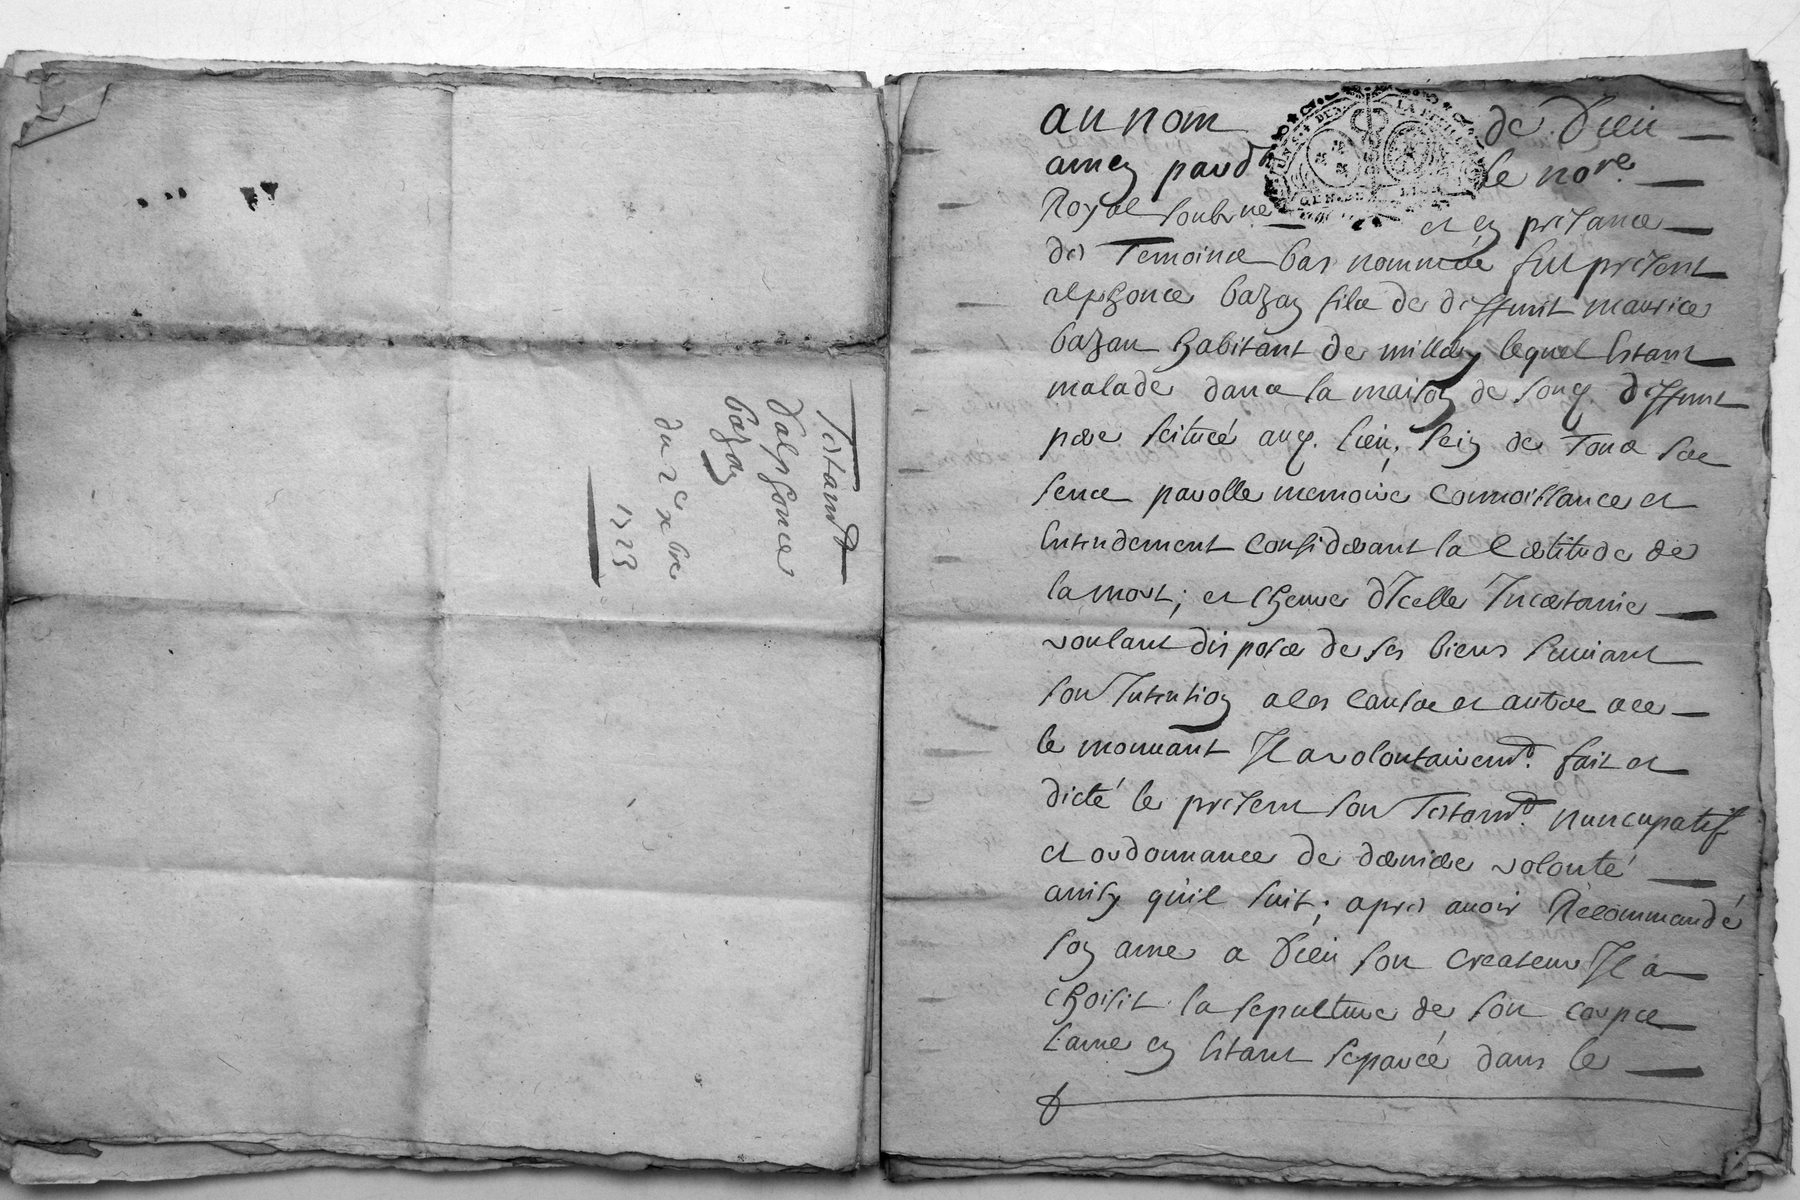 Testamt
d'alphonce
bazan
du 2e xbre
1723
au nom de Dieu
amen pardt le nore
Royal soubzne et en presance
des Temoins bas nommés fut present
alphonce bazan fils de deffunt maurice
bazan habitant de milla lequel Estant
malade dans la maison de sond. deffunt
pere scituée aud. lieu, sein de Tous ses
sens parolle memoire connoissance et
Entendement considerant la Certitude de
la mort; et lheure d'Icelle Incertaine
voulant disposer de ses biens suivant
son Intention a ces causes et autres ace
le mouvant Il a volontairemt. fait et
dicté le present son Testamt. nuncupatif
et ordonnance de derniere volonté
ainsy qu'il suit; apres avoir Recommandé
son ame a Dieu son createur Il a
choisit la sepulture de son corps
lame en Estant separée dans le